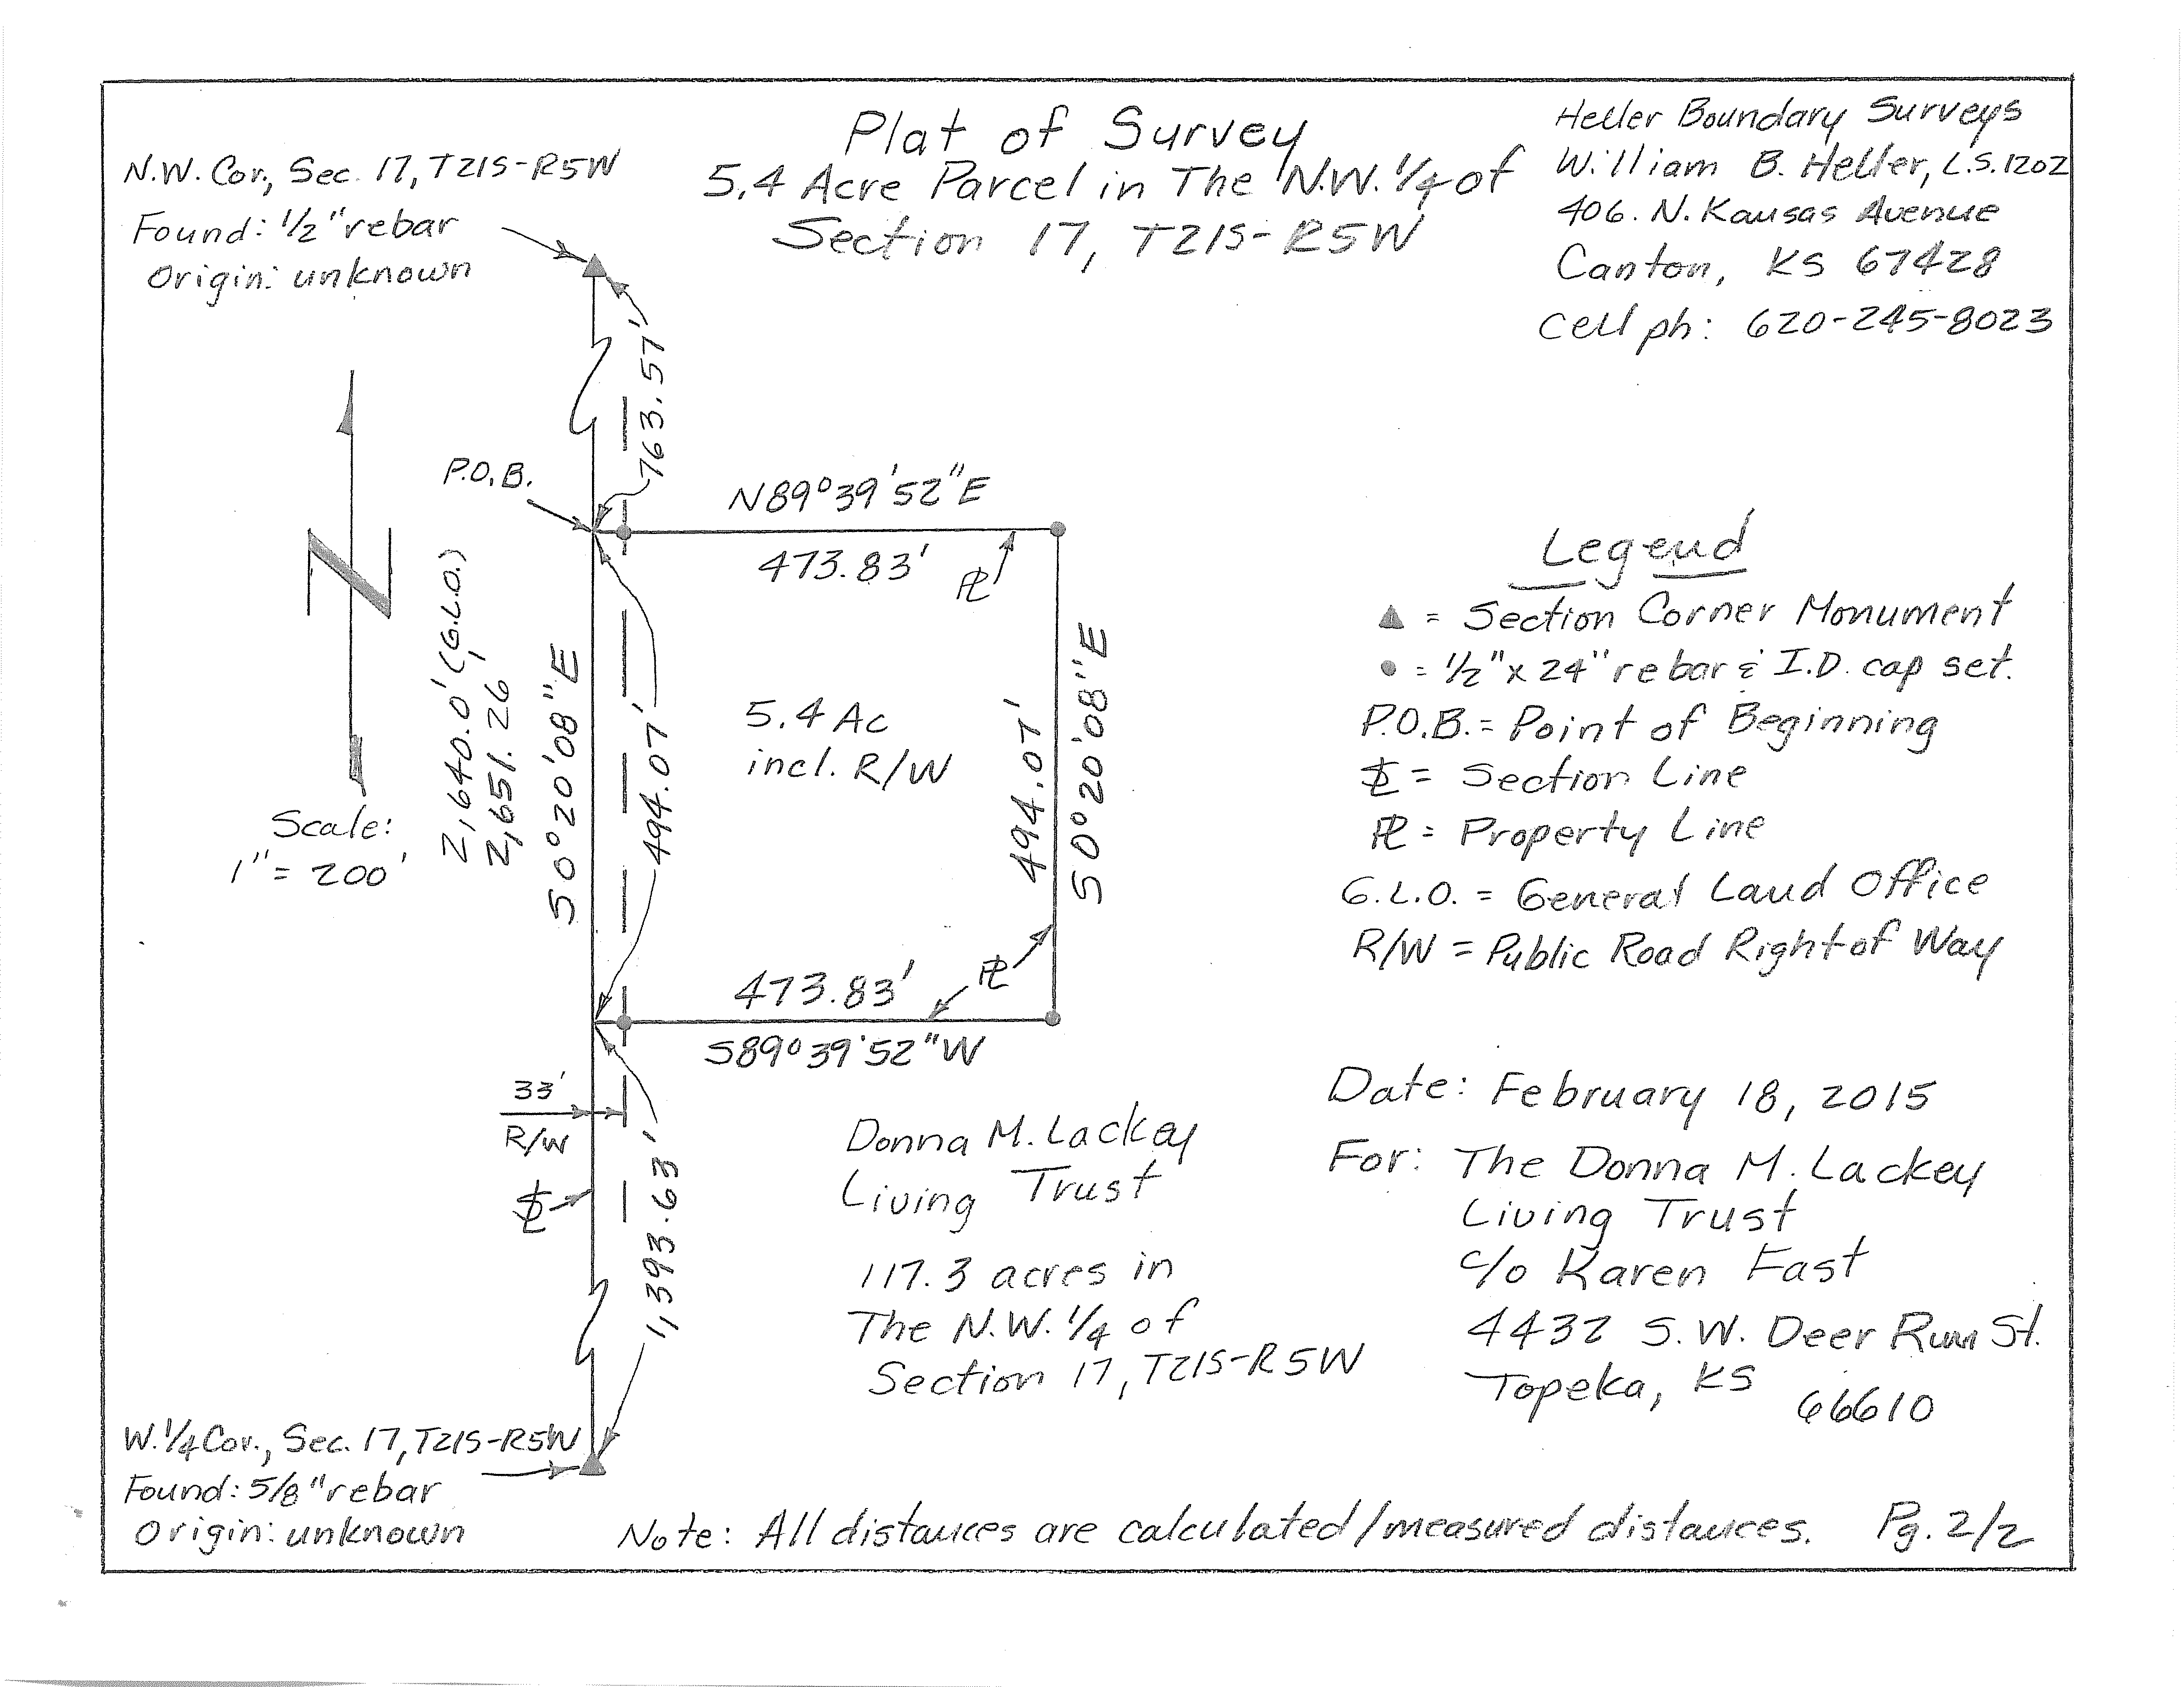 Plat of Survey
5.4 Acre Parcel in The N.W. 1/4 of
Section 17, T21S-R5W
Heller Boundary Surveys
William B. Heller, L.S. 1202
406. N. Kansas Avenue
Canton, KS 67428
Cell ph: 620-245-8023
N.W. Cor., Sec. 17, T21S-R5W
Found: 1/2" rebar
Origin: unknown
763.57'
P.O.B.
N89°39'52"E
473.83'
PL
2,640.0' (G.L.O.)
2,651.26
S0°20'08"E
494.07'
5.4 Ac
incl. R/W
494.07'
S0°20'08"E
Scale:
1" = 200'
473.83'
PL
S89°39'52"W
33'
R/W
SL
1,393.63'
Donna M. Lackey
Living Trust
117.3 acres in
The N.W. 1/4 of
Section 17, T21S-R5W
Legend
▲ = Section Corner Monument
● = 1/2" x 24" rebar & I.D. cap set.
P.O.B. = Point of Beginning
SL = Section Line
PL = Property Line
G.L.O. = General Land Office
R/W = Public Road Right of Way
Date: February 18, 2015
For: The Donna M. Lackey
Living Trust
c/o Karen Fast
4432 S.W. Deer Run St.
Topeka, KS 66610
W. 1/4 Cor., Sec. 17, T21S-R5W
Found: 5/8" rebar
Origin: unknown
Note: All distances are calculated/measured distances. Pg. 2/2